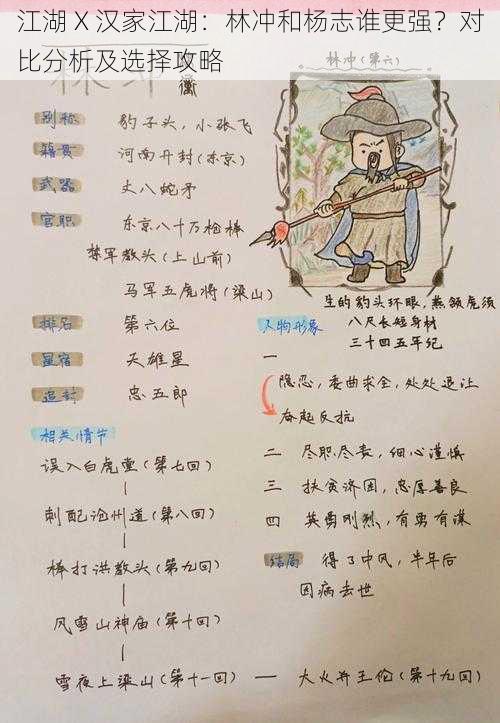 江湖 X 汉家江湖：林冲和杨志谁更强？对
比分析及选择攻略
林冲(第六)
别称 豹子头，小张飞
籍贯 河南开封(东京)
武器 丈八蛇矛
官职 东京八十万枪棒
禁军教头(上山前)
马军五虎将(梁山)
排名 第六位
星宿 天雄星
追封 忠五郎
相关情节
误入白虎堂(第七回)
刺配沧州道(第八回)
棒打洪教头(第九回)
风雪山神庙(第十回)
雪夜上梁山(第十一回) — 大火并王伦(第十九回)
生的豹头环眼，燕颔虎须
八尺长短身材
三十四五年纪
人物形象
一 隐忍，委曲求全，处处退让
奋起反抗
二 尽职尽责，细心谨慎
三 扶贫济困，忠厚善良
四 英勇刚烈，有勇有谋
结局 得了中风，半年后
因病去世